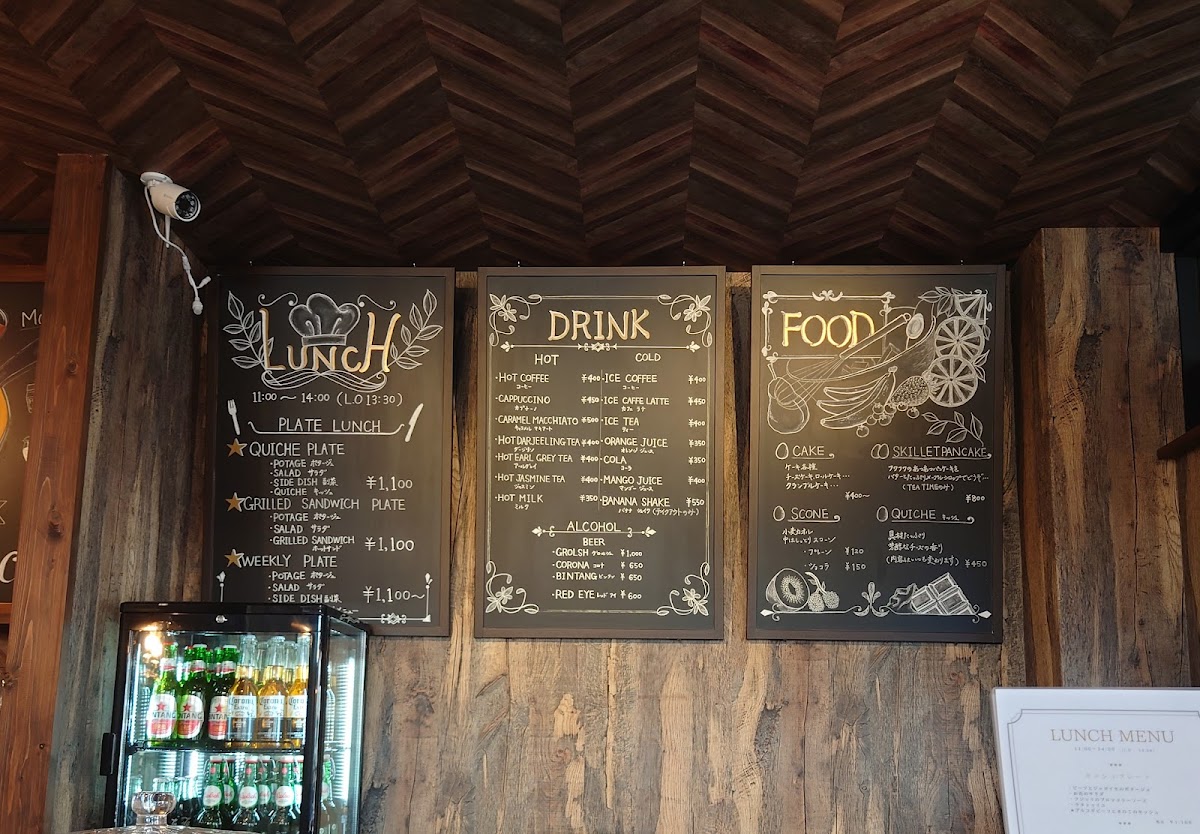 LUNCH
11:00 ～ 14:00 (L.O 13:30)
PLATE LUNCH
QUICHE PLATE
・POTAGE ポタージュ
・SALAD サラダ
・SIDE DISH 副菜
・QUICHE キッシュ
¥1,100
GRILLED SANDWICH PLATE
・POTAGE ポタージュ
・SALAD サラダ
・GRILLED SANDWICH
ホットサンド
¥1,100
WEEKLY PLATE
・POTAGE ポタージュ
・SALAD サラダ
・SIDE DISH 副菜
¥1,100～
DRINK
HOT
・HOT COFFEE ¥400
コーヒー
・CAPPUCCINO ¥450
カプチーノ
・CARAMEL MACCHIATO ¥500
キャラメル マキアート
・HOT DARJEELING TEA ¥400
ダージリン
・HOT EARL GREY TEA ¥400
アールグレイ
・HOT JASMINE TEA ¥400
ジャスミン
・HOT MILK ¥350
ミルク
COLD
・ICE COFFEE ¥400
コーヒー
・ICE CAFFE LATTE ¥450
カフェ ラテ
・ICE TEA ¥400
ティー
・ORANGE JUICE ¥350
オレンジ ジュース
・COLA ¥350
コーラ
・MANGO JUICE ¥400
マンゴー ジュース
・BANANA SHAKE ¥550
バナナ シェイク (テイクアウトのみ)
ALCOHOL
BEER
・GROLSH グロールシュ ¥1,000
・CORONA コロナ ¥650
・BINTANG ビンタン ¥650
・RED EYE レッド アイ ¥600
FOOD
CAKE
ケーキ各種
チーズケーキ、ロールケーキ…
クランブルケーキ…
¥400～
SKILLET PANCAKE
(TEA TIMEのみ)
¥800
SCONE
小麦の香り
中はしっとりスコーン
・プレーン ¥120
・ショコラ ¥150
QUICHE キッシュ
具材たっぷり
芳醇なチーズの香り
¥450
BINTANG
Corona
LUNCH MENU